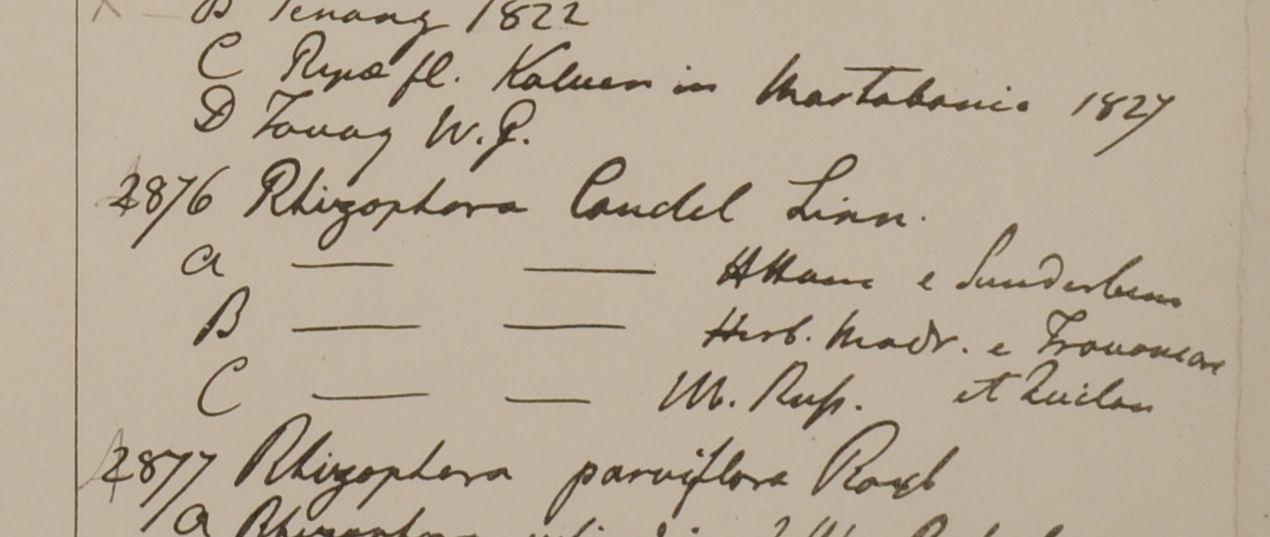 B Penang 1822
C Ripæ fl. Kaluen in Martabania 1827
D Tavoy W.G.
4876 Rhizophora Candel Linn.
a — — HHam e Sunderbuns
B — — Herb. Madr. e Travancore
C — — M. Rup. et Quilon
4877 Rhizophora parviflora Roxb
a Rhizophora